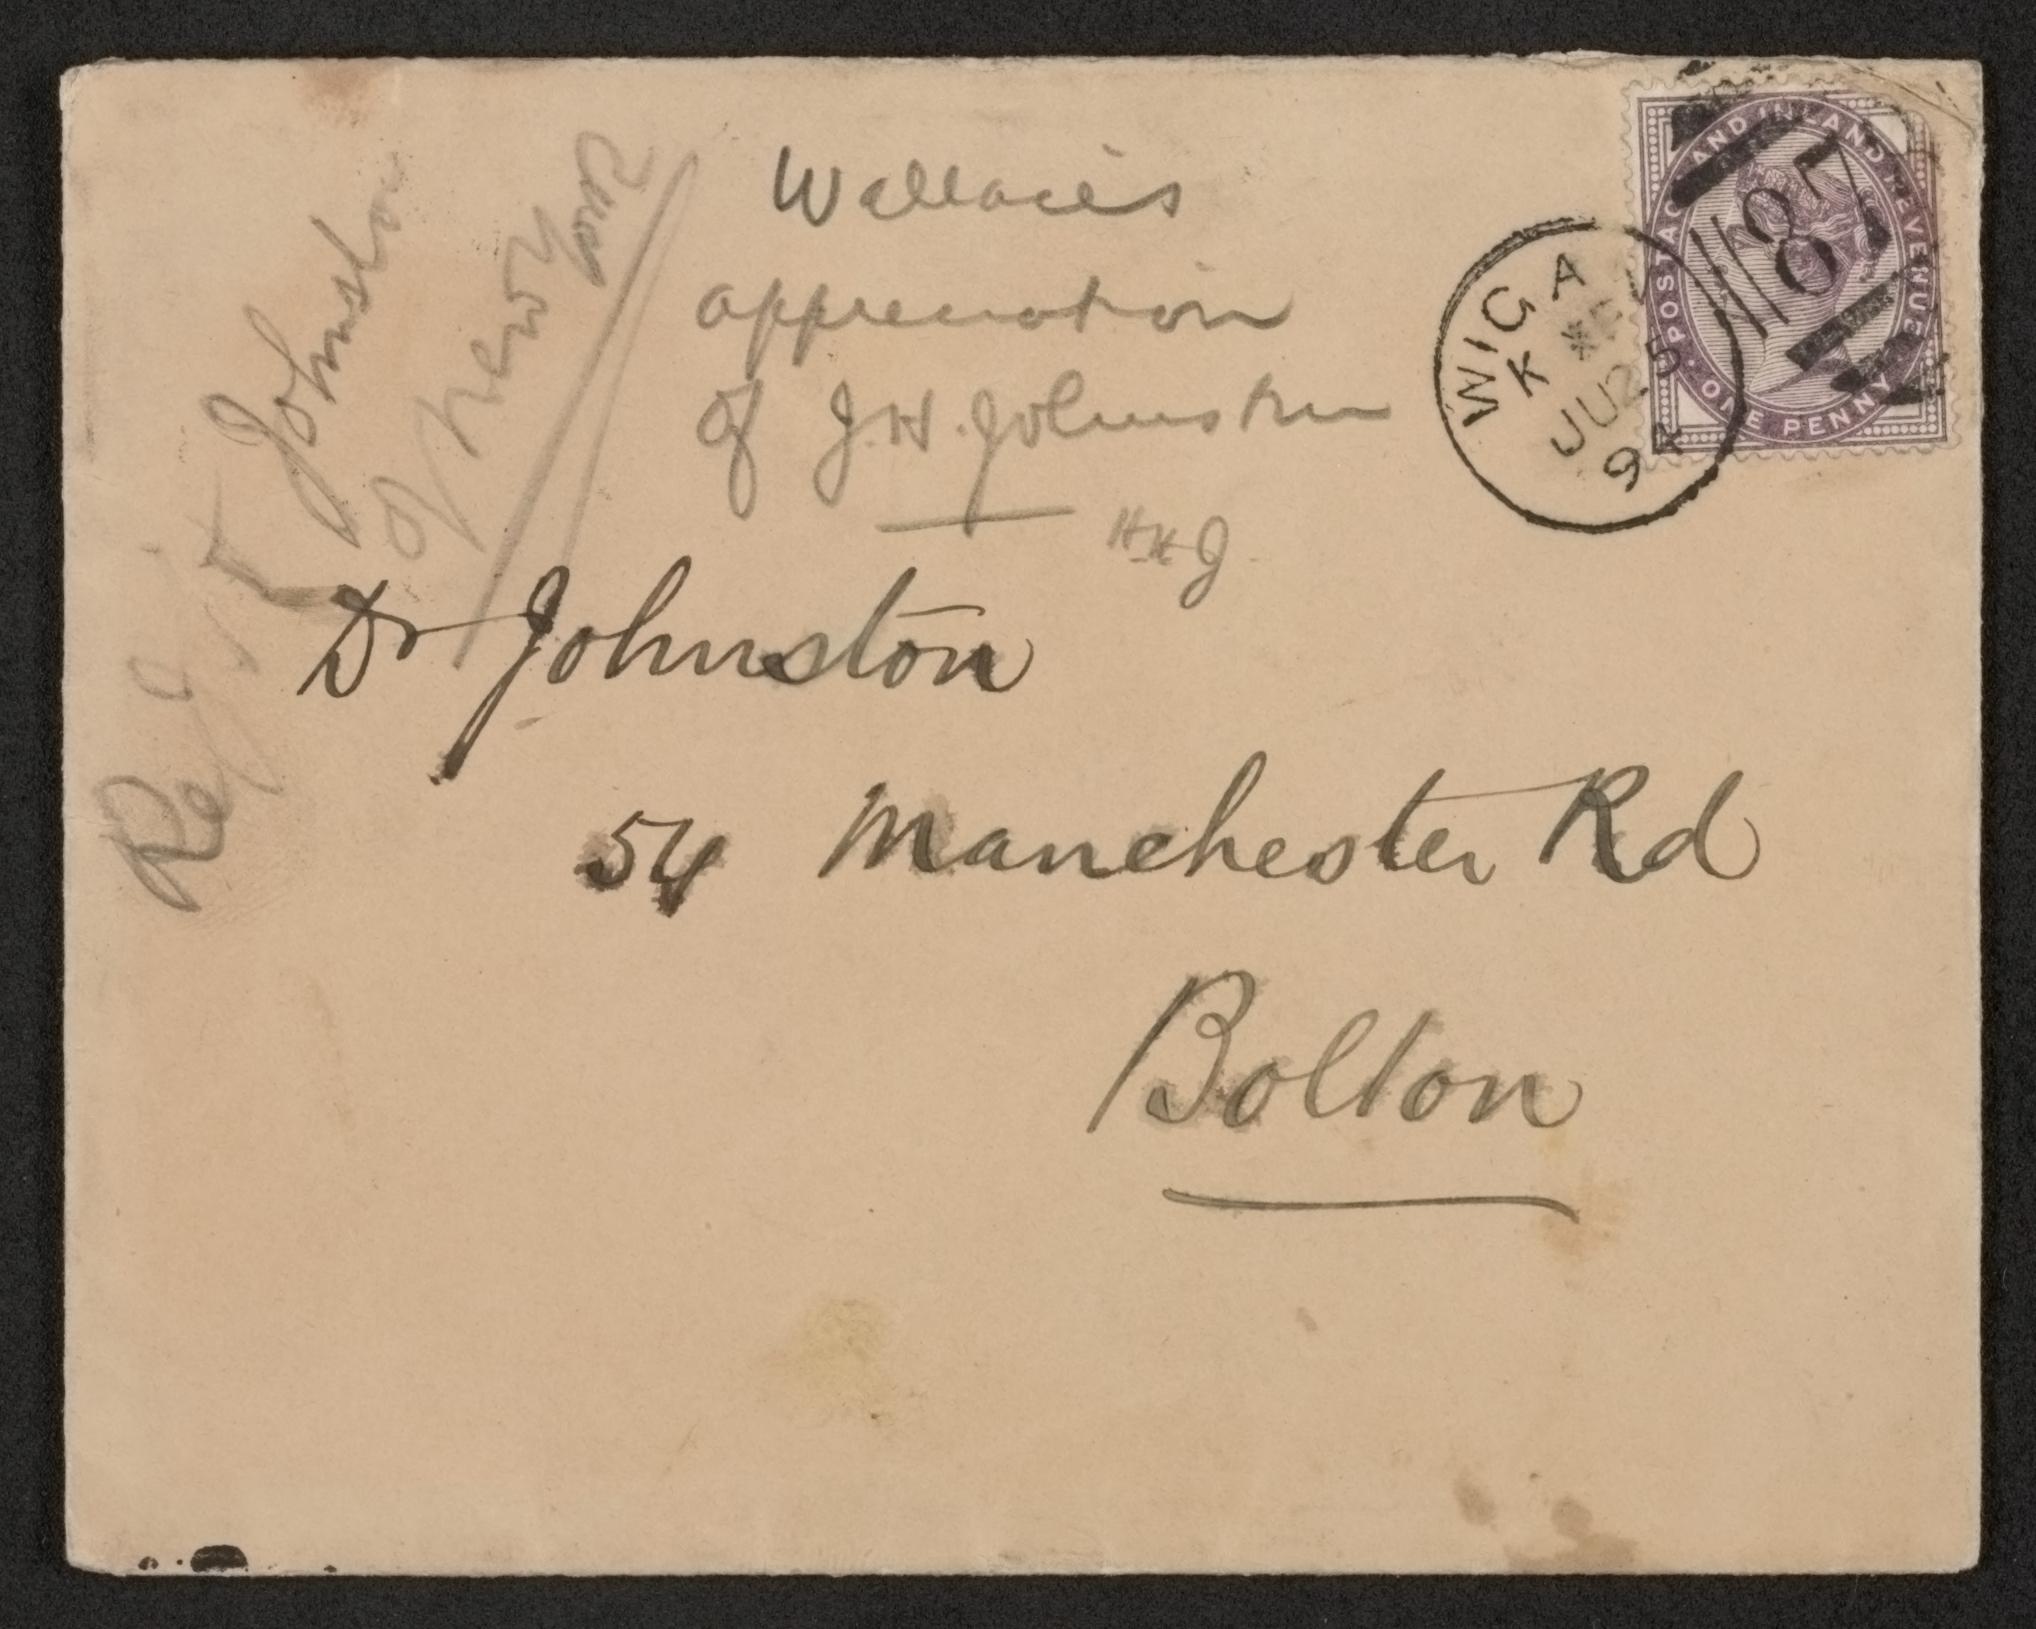 Ref J H Johnston
of New York
Wallace's
appreciation
of J.H. Johnston
H.H.J.
WIGAN
K
JU 25
94
87
POSTAGE AND INLAND REVENUE
ONE PENNY
Dr Johnston
54 Manchester Rd
Bolton